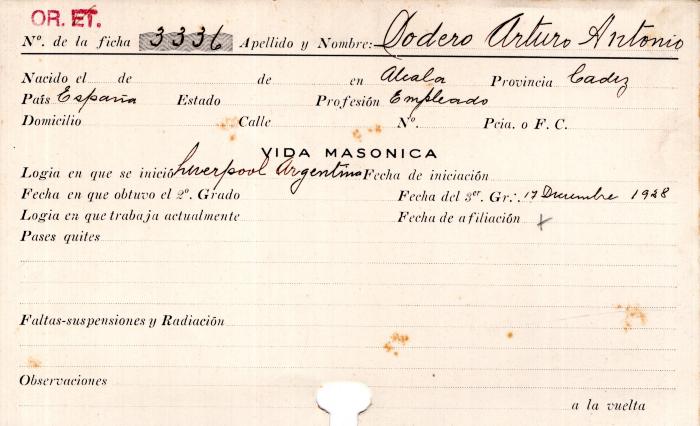 OR. ET.
Nº. de la ficha 3336 Apellido y Nombre: Dodero Arturo Antonio
Nacido el de de en Alcala Provincia Cadiz
País España Estado Profesión Empleado
Domicilio Calle Nº. Pcia. o F. C.
VIDA MASONICA
Logia en que se inició Liverpool Argentino Fecha de iniciación
Fecha en que obtuvo el 2º. Grado Fecha del 3er. Gr∴ 17 Diciembre 1928
Logia en que trabaja actualmente Fecha de afiliación
Pases quites
Faltas-suspensiones y Radiación
Observaciones
a la vuelta